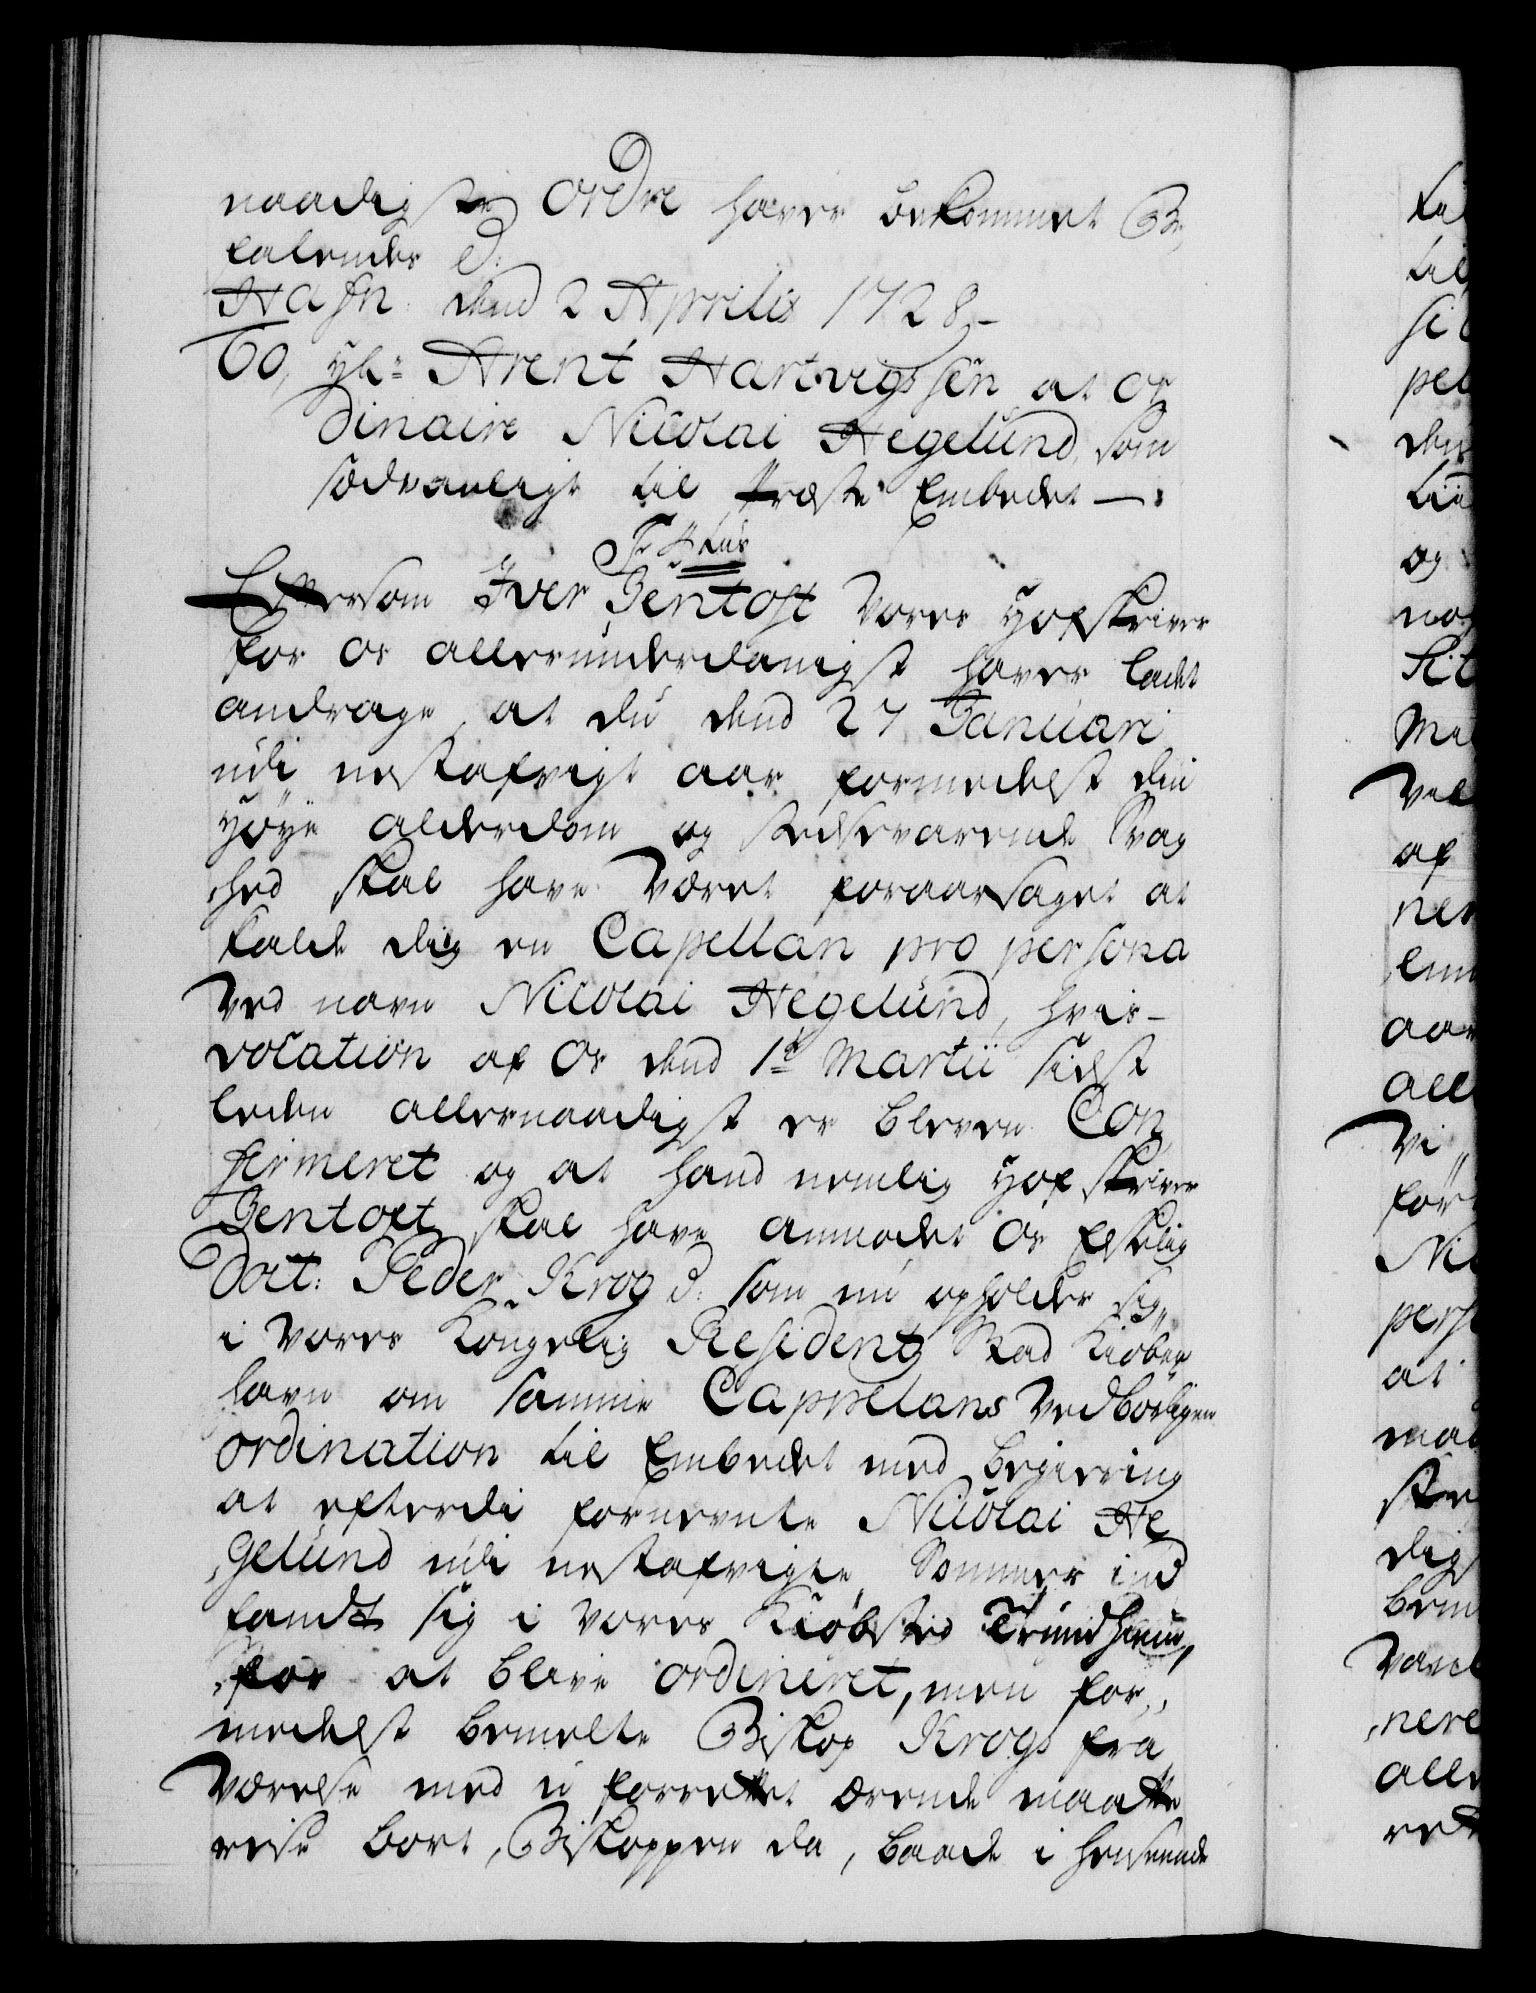 naadigste Ordre haver bekommet Be„
falendes &:
Hafn: dend 2 Aprilis 1728,–
60, Hr: Arent Hartvigssen at or
dinaire Nicolai Hegelund, som
sædvanligt til Præste Embedet –.
Fr 4tus
Eftersom Iver Gentoft Vores Hofskriver
for os allerunderdanigst haver ladet
andrage, at du dend 27 Januari
udi nestafvigt aar formedelst din
Høye alderdom og stedsevarende Svag
„hed skal have Været foraarsaget at
kalde dig en Capellan pro persona
Ved navn Nicolai Hegelund, hvis–
vocation af Os dend 1te Martii sidst
leden allernaadigst er bleven Con„
firmeret og at hand nemlig Hof skriver
Gentoft skal have anmodet Os Elskelig
Doct: Peder Krog &: som nu opholder sig„
i Vores Kongelig Residentz Stad Kiøben„
havn om samme Cappelans Vedbørligen
ordination til Embedet med begiering
at efterdi fornevnte Nicolai He
„gelund udi nestafvigte Sommer ind
fandt sig i Vores Kiøbsted Trundhiem,
„for at blive ordineret, men for„
medelst bemelte Biskop Krogs fra
Værelse med u forrettet ærende maatte
reise bort, Biskoppen da, baade i henseende